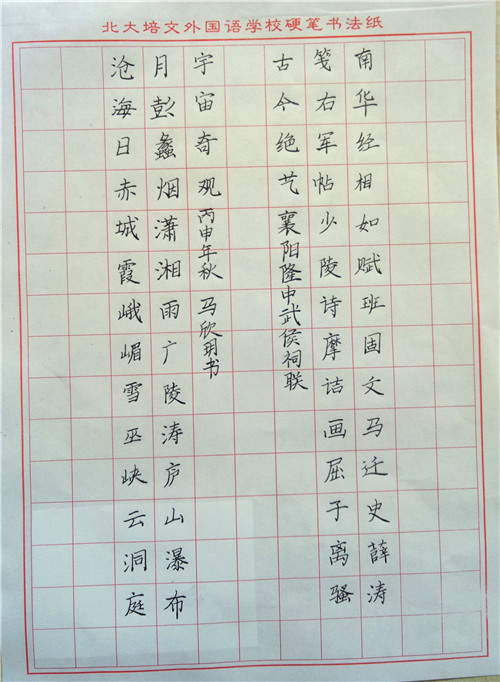 北大培文外国语学校硬笔书法纸
南华经相如赋班固文马迁史薛涛
笺右军帖少陵诗摩诘画屈子离骚
古今绝艺 襄阳隆中武侯祠联
沧海日赤城霞峨嵋雪巫峡云洞庭
月彭蠡烟潇湘雨广陵涛庐山瀑布
宇宙奇观 丙申年秋 马欣玥书